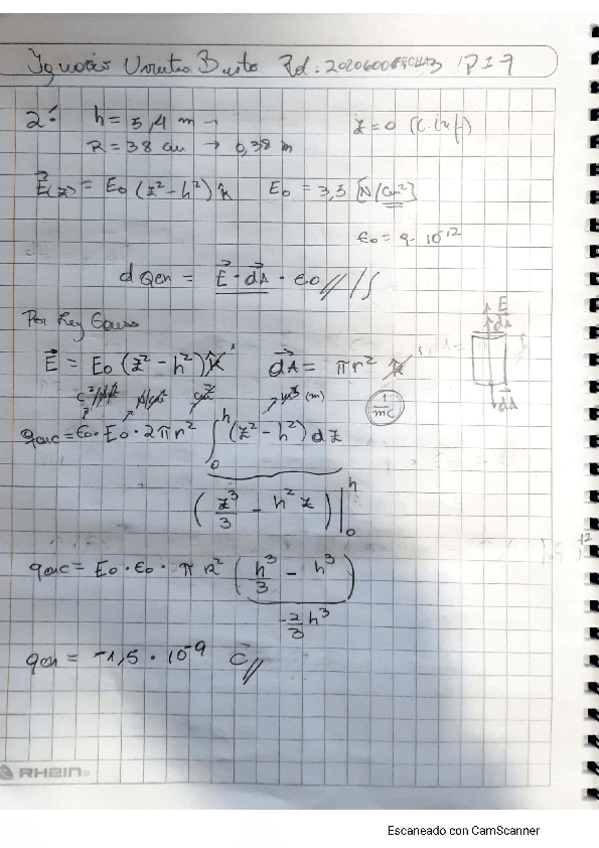 Ignacio Urrutia Busto Rol: 2020600 FECHA
2.- h = 5,4 m → z = 0 (C. inf)
R = 38 cm → 0,38 m
E(z) = E0 (z² - h²) k̂ E0 = 3,3 [N/cm²]
ε0 = 9 · 10⁻¹²
d Qen = E · dA · ε0 // /∫
E
dA
Por Ley Gauss
E = E0 (z² - h²) k̂ dA = πr² k̂
dA
(m) 1/mc
qenc = ε0 · E0 · 2πr² ∫₀ʰ (z² - h²) dz
(z³/3 - h² z) |₀ʰ
qenc = E0 · ε0 · π R² (h³/3 - h³)
-2/3 h³
qen = -1,5 · 10⁻⁹ C //
RHEIN
Escaneado con CamScanner